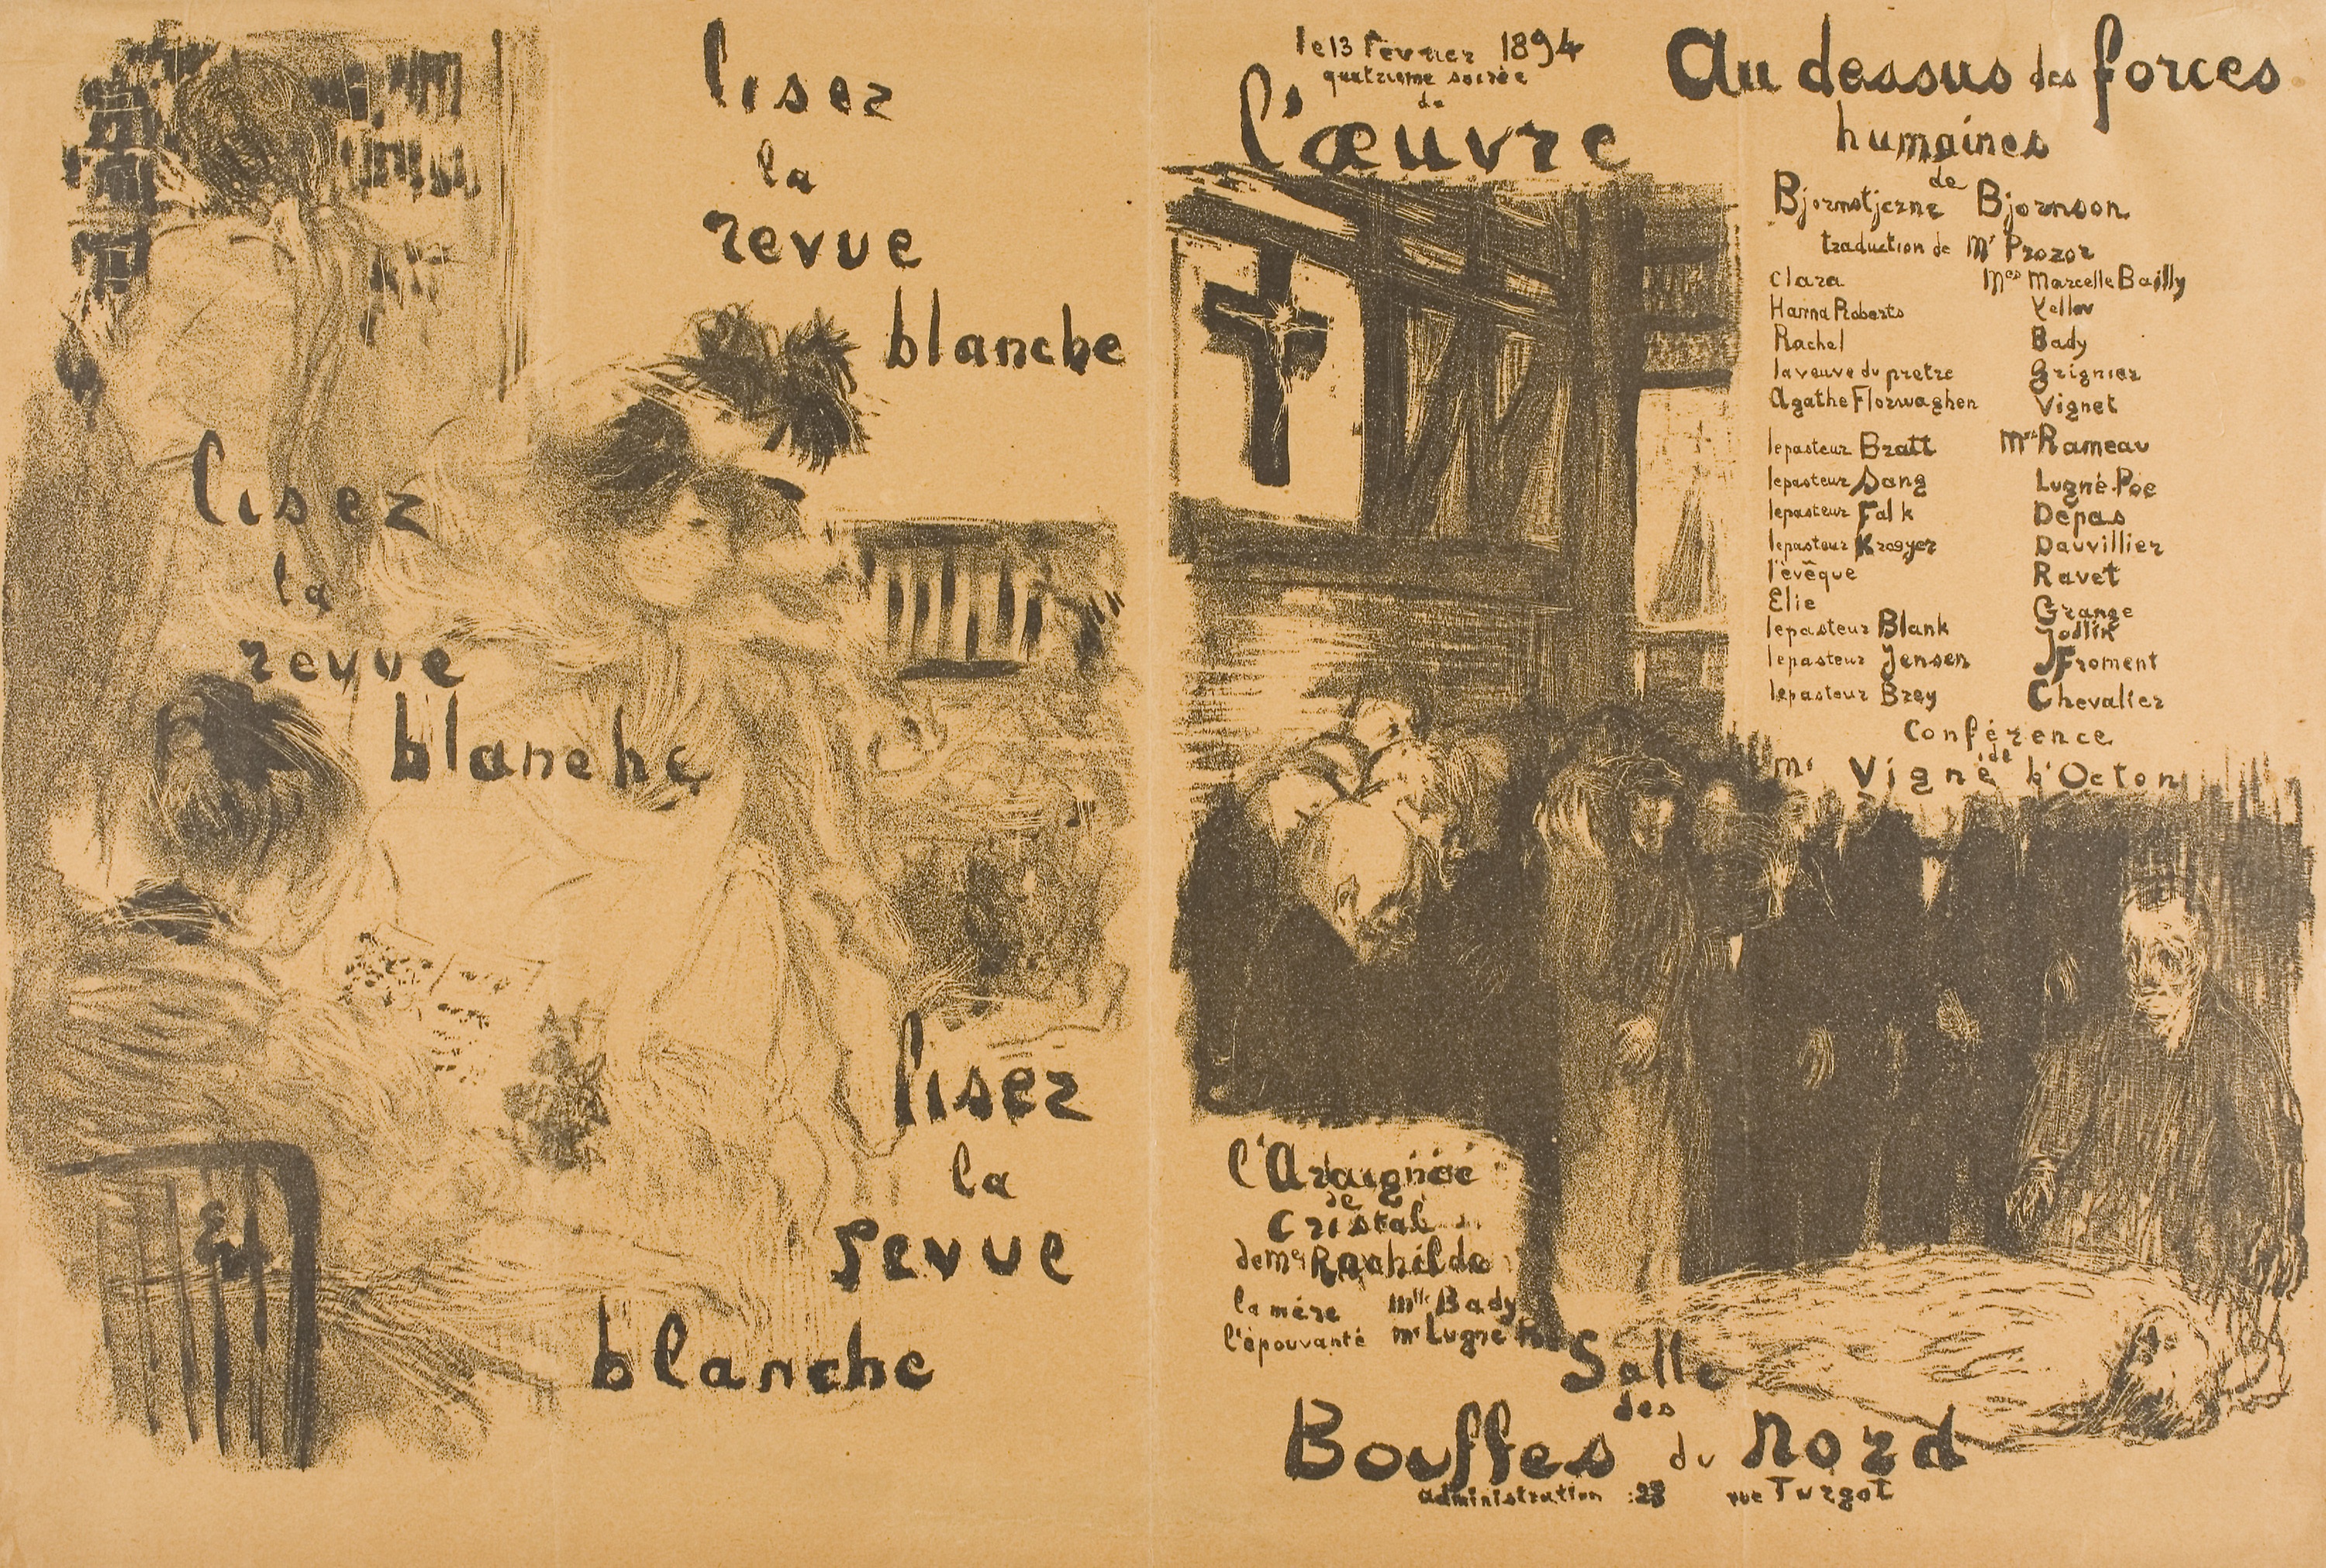 lisez
la
revue
blanche
lisez
la
revue
blanche
lisez
la
revue
blanche
le 13 fevrier 1894
quatrieme soirée
de
l'œuvre
Au dessus des forces
humaines
de
Bjornstjerne Bjornson
traduction de Mr Prozor
Clara Mes Marcelle Bailly
Hanna Roberts Yellov
Rachel Bady
la veuve du pretre Grignier
Agathe Florwaghen Vignet
le pasteur Bratt Mrs Rameau
le pasteur Sang Lugné-Poe
le pasteur Falk Depas
le pasteur Kroeyer Dauvillier
l'évêque Ravet
Elie Grange
le pasteur Blank
le pasteur Jensen Froment
le pasteur Brey Chevalier
Conférence
de
Mr Vigné d'Octon
l'Araignée
de
Cristal
de Me Rachilde
la mére Mlle Bady
l'épouvanté Mr Lugné
Salle
des
Bouffes du Nord
administration : 23 rue Turgot